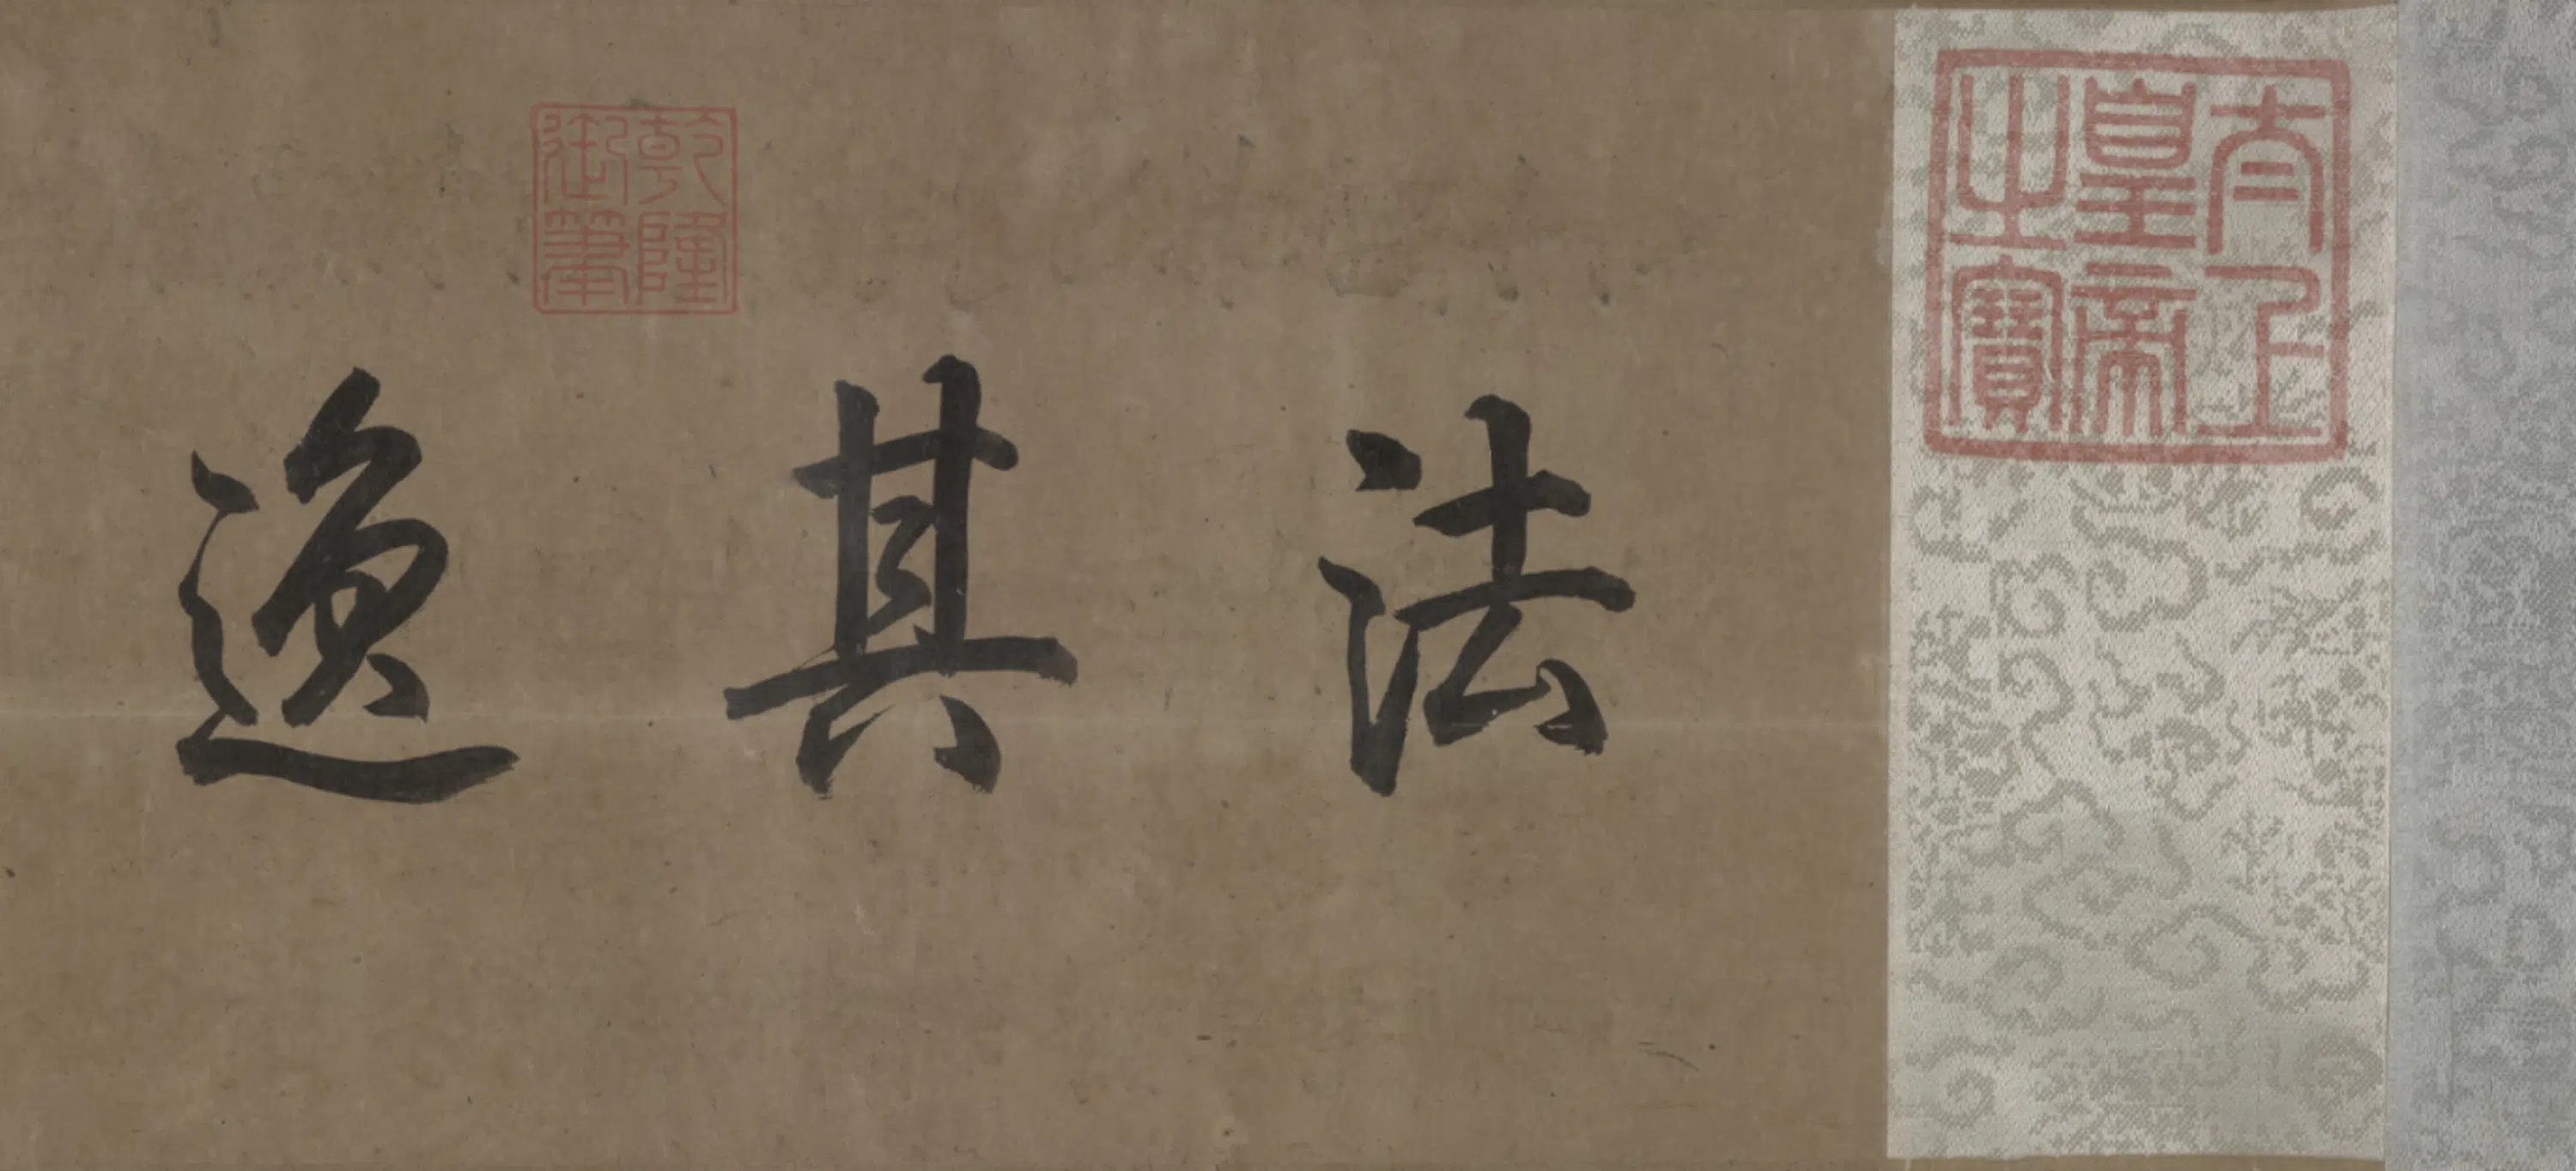 太上
皇帝
之寶
法其逸
乾隆
御筆